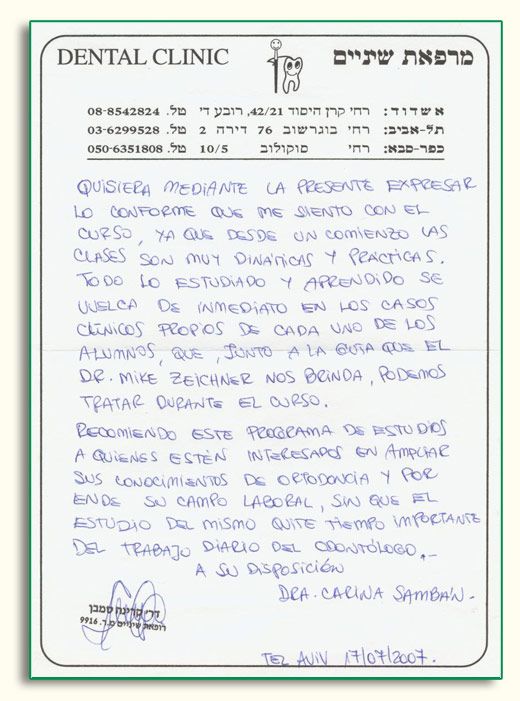 DENTAL CLINIC
מרפאת שיניים
אשדוד: רחי קרן היסוד 42/21, רובע די טל. 08-8542824
תל-אביב: רחי בוגרשוב 76 דירה 2 טל. 03-6299528
כפר-סבא: רחי סוקולוב 10/5 טל. 050-6351808
QUISIERA MEDIANTE LA PRESENTE EXPRESAR
LO CONFORME QUE ME SIENTO CON EL
CURSO, YA QUE DESDE UN COMIENZO LAS
CLASES SON MUY DINÁMICAS Y PRÁCTICAS.
TODO LO ESTUDIADO Y APRENDIDO SE
VUELCA DE INMEDIATO EN LOS CASOS
CLÍNICOS PROPIOS DE CADA UNO DE LOS
ALUMNOS, QUE, JUNTO A LA GUIA QUE EL
DR. MIKE ZEICHNER NOS BRINDA, PODEMOS
TRATAR DURANTE EL CURSO.
RECOMIENDO ESTE PROGRAMA DE ESTUDIOS
A QUIENES ESTÉN INTERESADOS EN AMPLIAR
SUS CONOCIMIENTOS DE ORTODONCIA Y POR
ENDE SU CAMPO LABORAL, SIN QUE EL
ESTUDIO DEL MISMO QUITE TIEMPO IMPORTANTE
DEL TRABAJO DIARIO DEL ODONTÓLOGO.-
A SU DISPOSICIÓN
DRA. CARINA SAMBÁN.
דר' קרינה סמבן
רופאת שיניים מ.ר. 9916
TEL AVIV 17/07/2007.